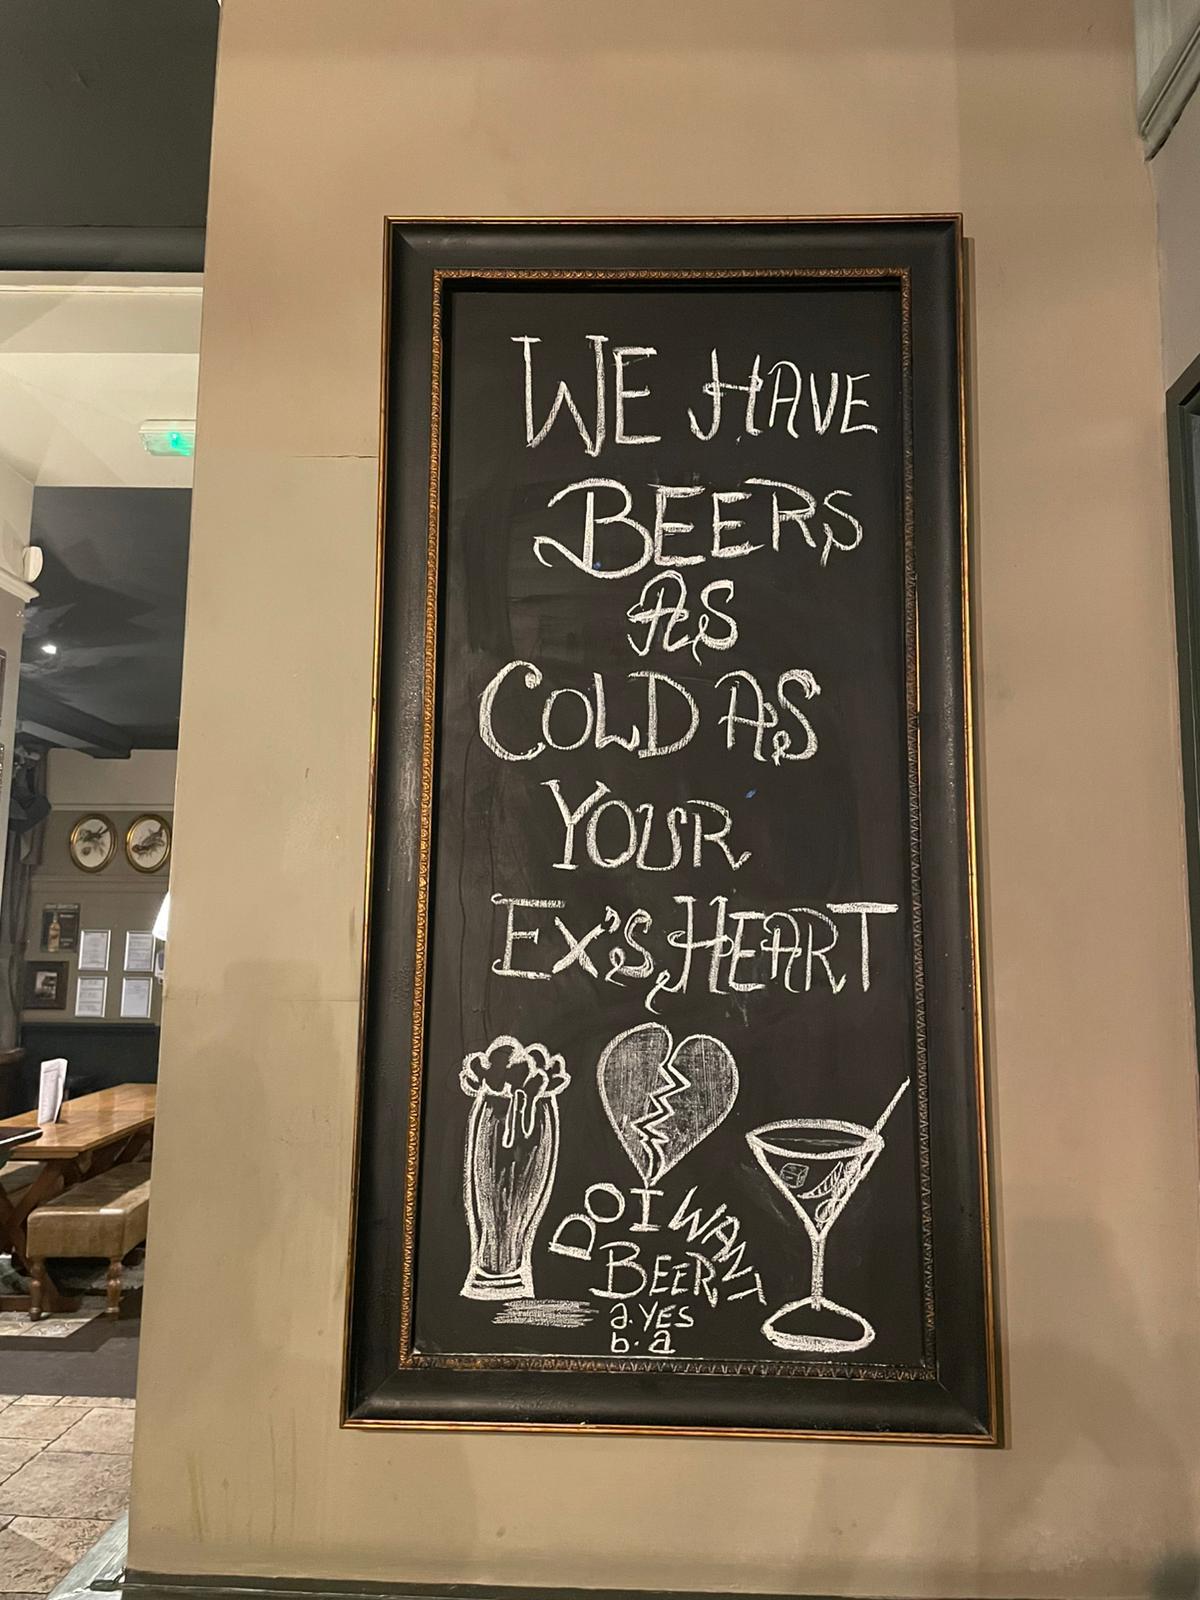 WE HAVE
BEERS
AS
COLD AS
YOUR
EX'S HEART
DO I WANT
BEER
a. YES
b. a